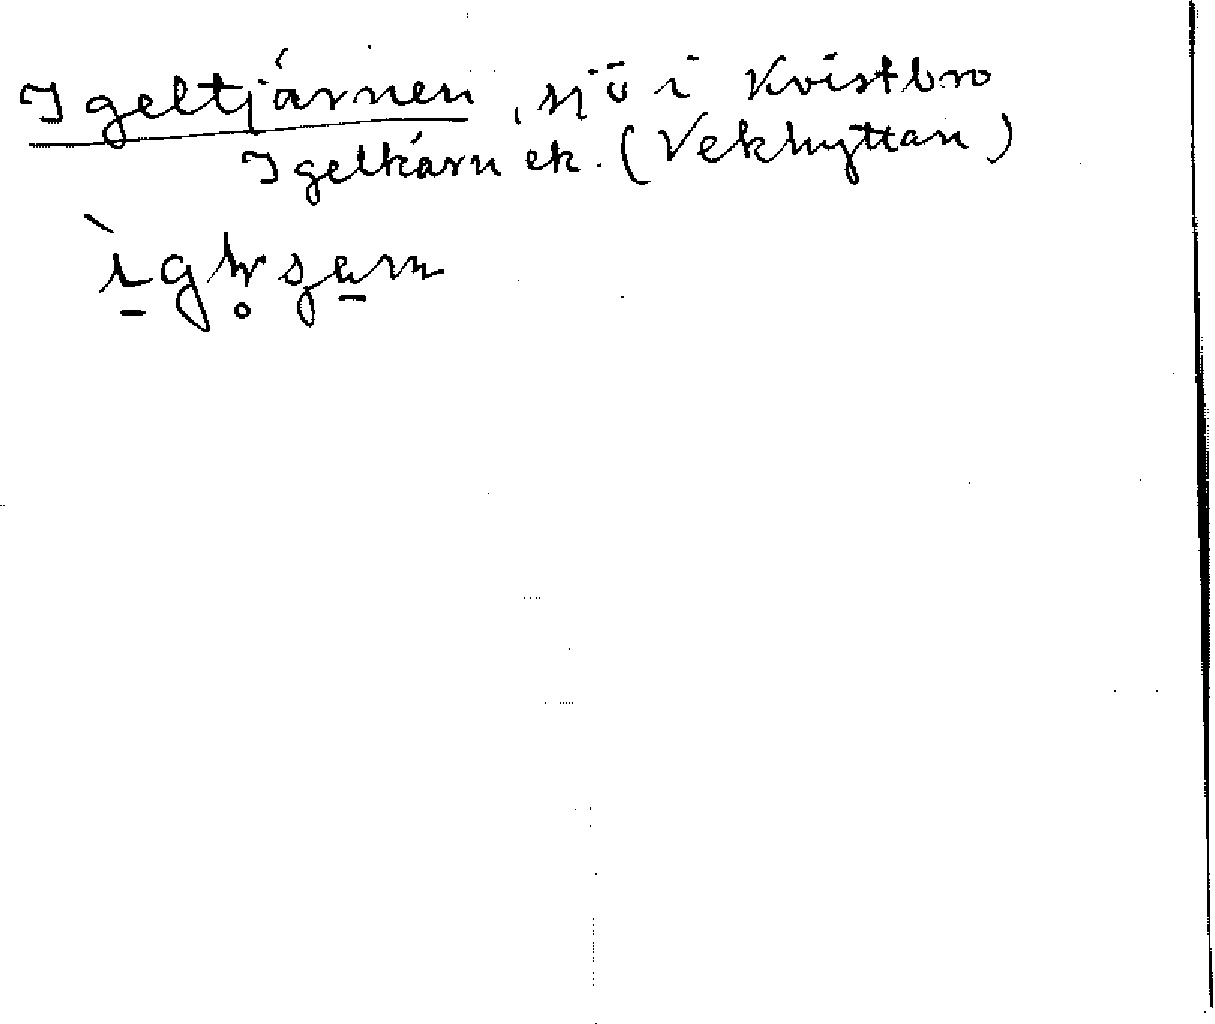 Igeltjärnen, sjö i Kvistbro
Igelkärn ek. (Vekhyttan)